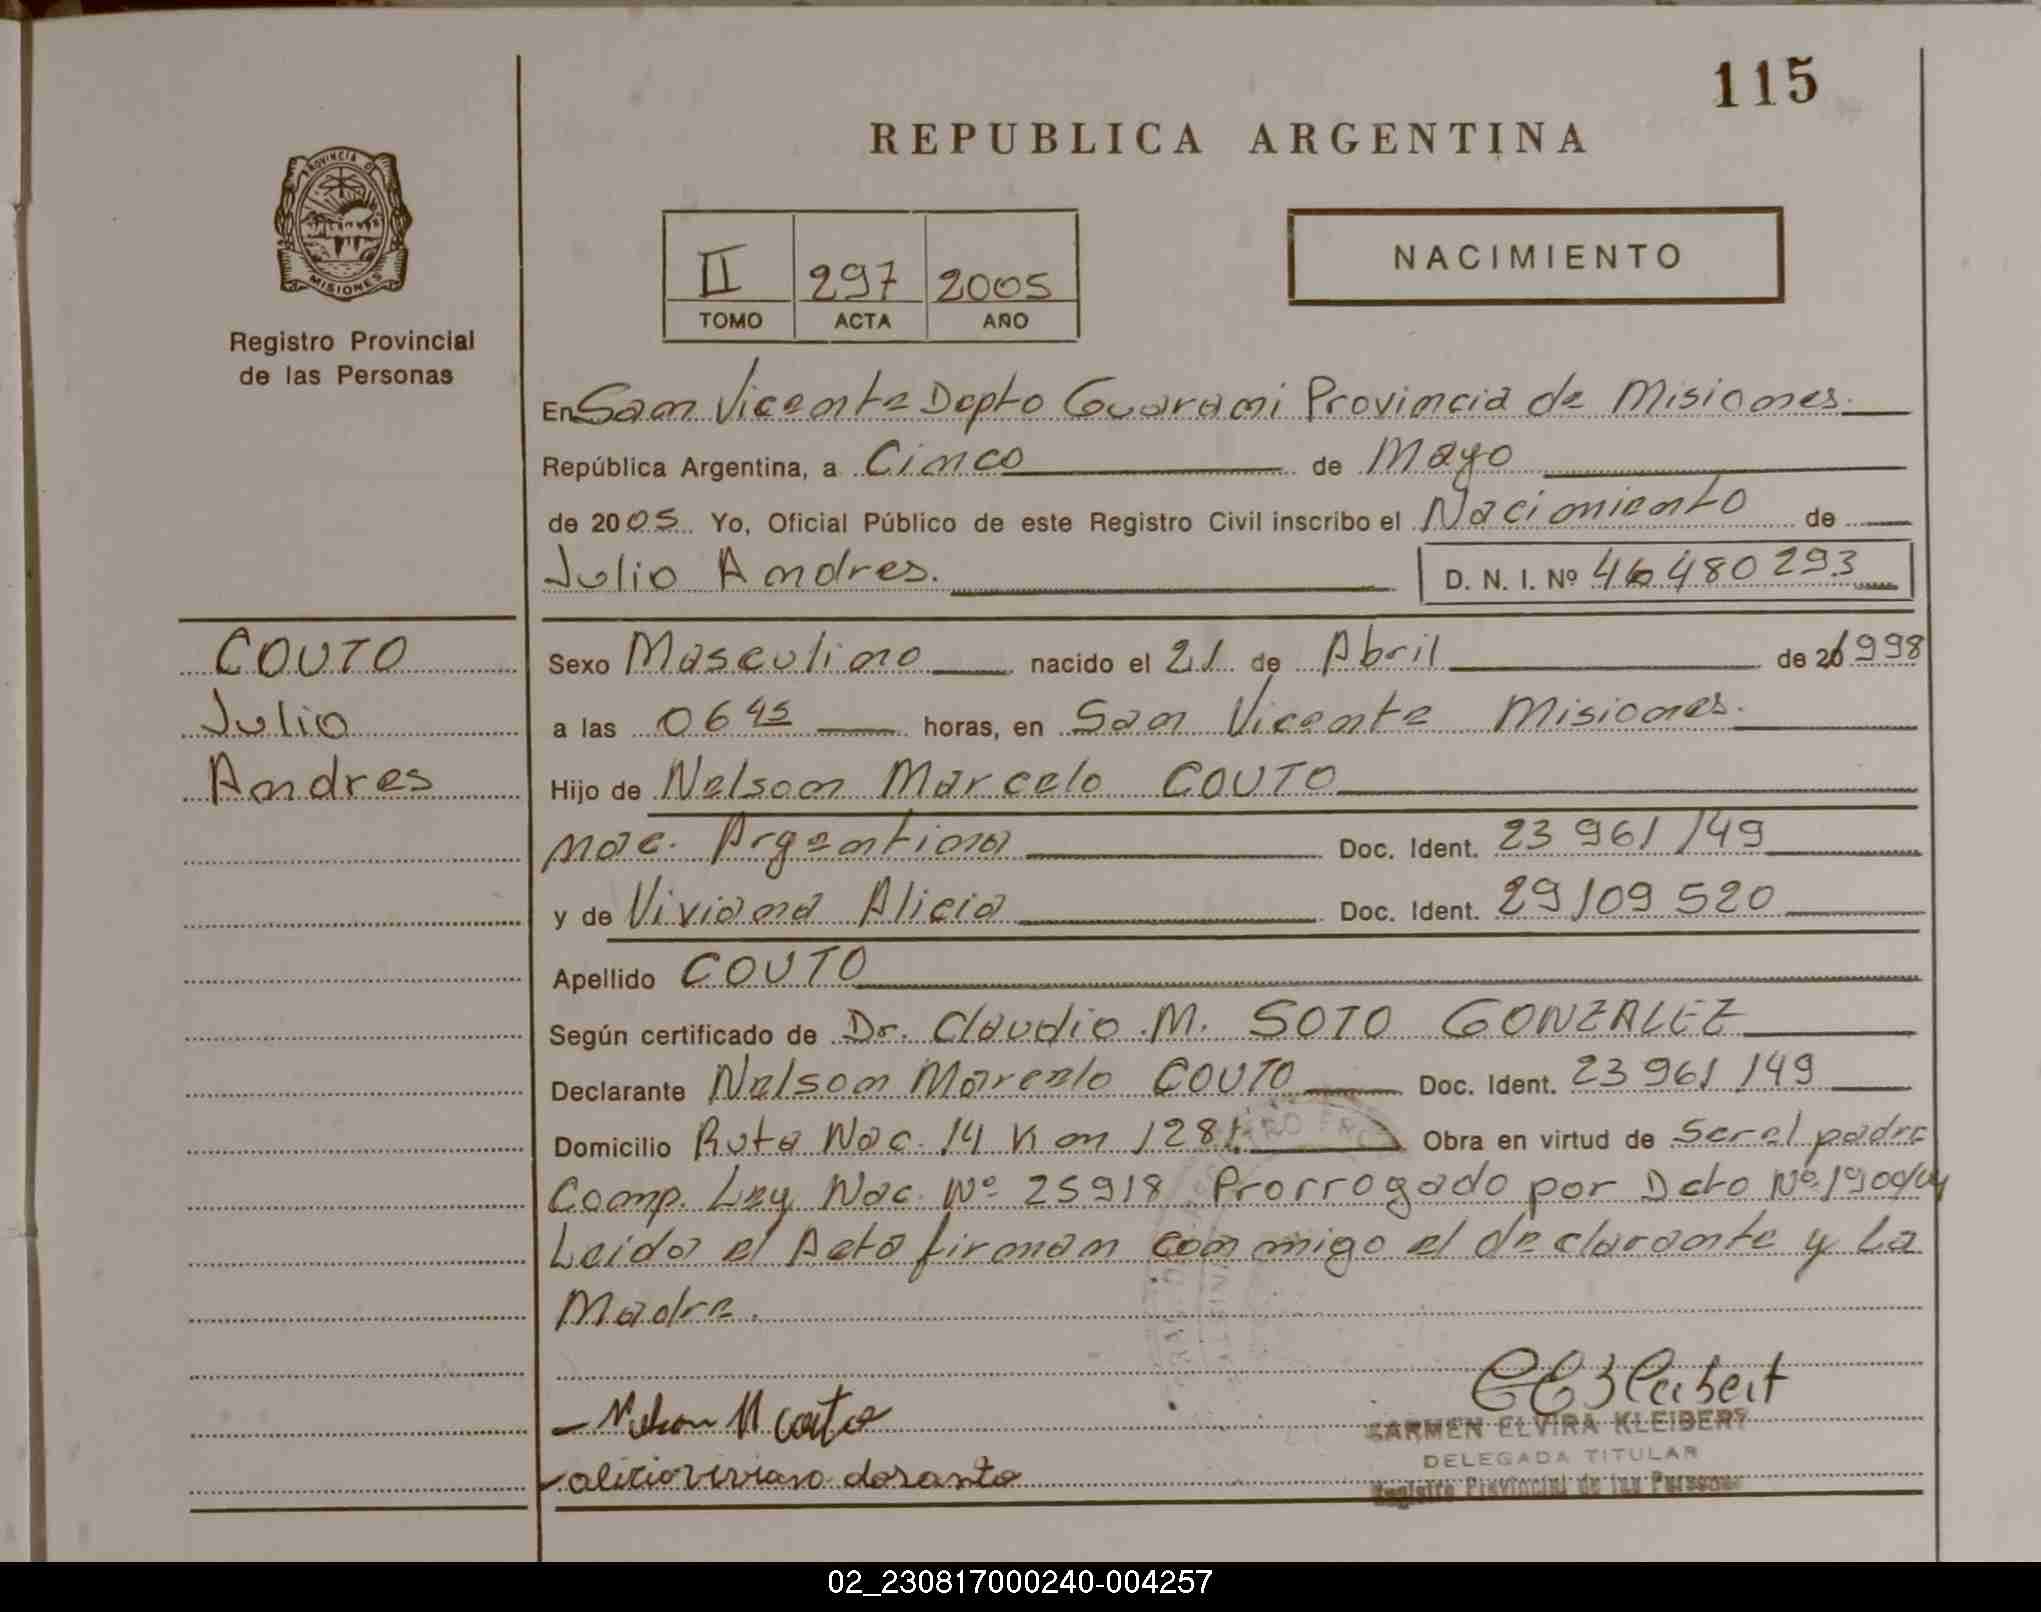 115
REPUBLICA ARGENTINA
PROVINCIA DE
MISIONES
Registro Provincial
de las Personas
II 297 2005
TOMO ACTA AÑO
NACIMIENTO
En San Vicente Depto Guarani Provincia de Misiones.
República Argentina, a Cinco de Mayo
de 2005 Yo, Oficial Público de este Registro Civil inscribo el Nacimiento de
Julio Andres. D. N. I. Nº 46 480 293
COUTO
Julio
Andres
Sexo Masculino nacido el 21 de Abril de 1998
a las 06 45 horas, en San Vicente Misiones.
Hijo de Nelson Marcelo COUTO
nac. Argentina Doc. Ident. 23 961 149
y de Viviana Alicia Doc. Ident. 29 109 520
Apellido COUTO
Según certificado de Dr. Claudio M. SOTO GONZALEZ
Declarante Nelson Marcelo COUTO Doc. Ident. 23 961 149
Domicilio Ruta Nac. 14 Km 1281. Obra en virtud de Ser el padre
Comp. Ley Nac. Nº 25918 Prorrogado por Dcto Nº 1900/04
Leida el Acta firman conmigo el declarante y La
Madre.
Nelson M couto
alicia viviana dosanto
CARMEN ELVIRA KLEIBERT
DELEGADA TITULAR
Registro Provincial de las Personas
02_230817000240-004257